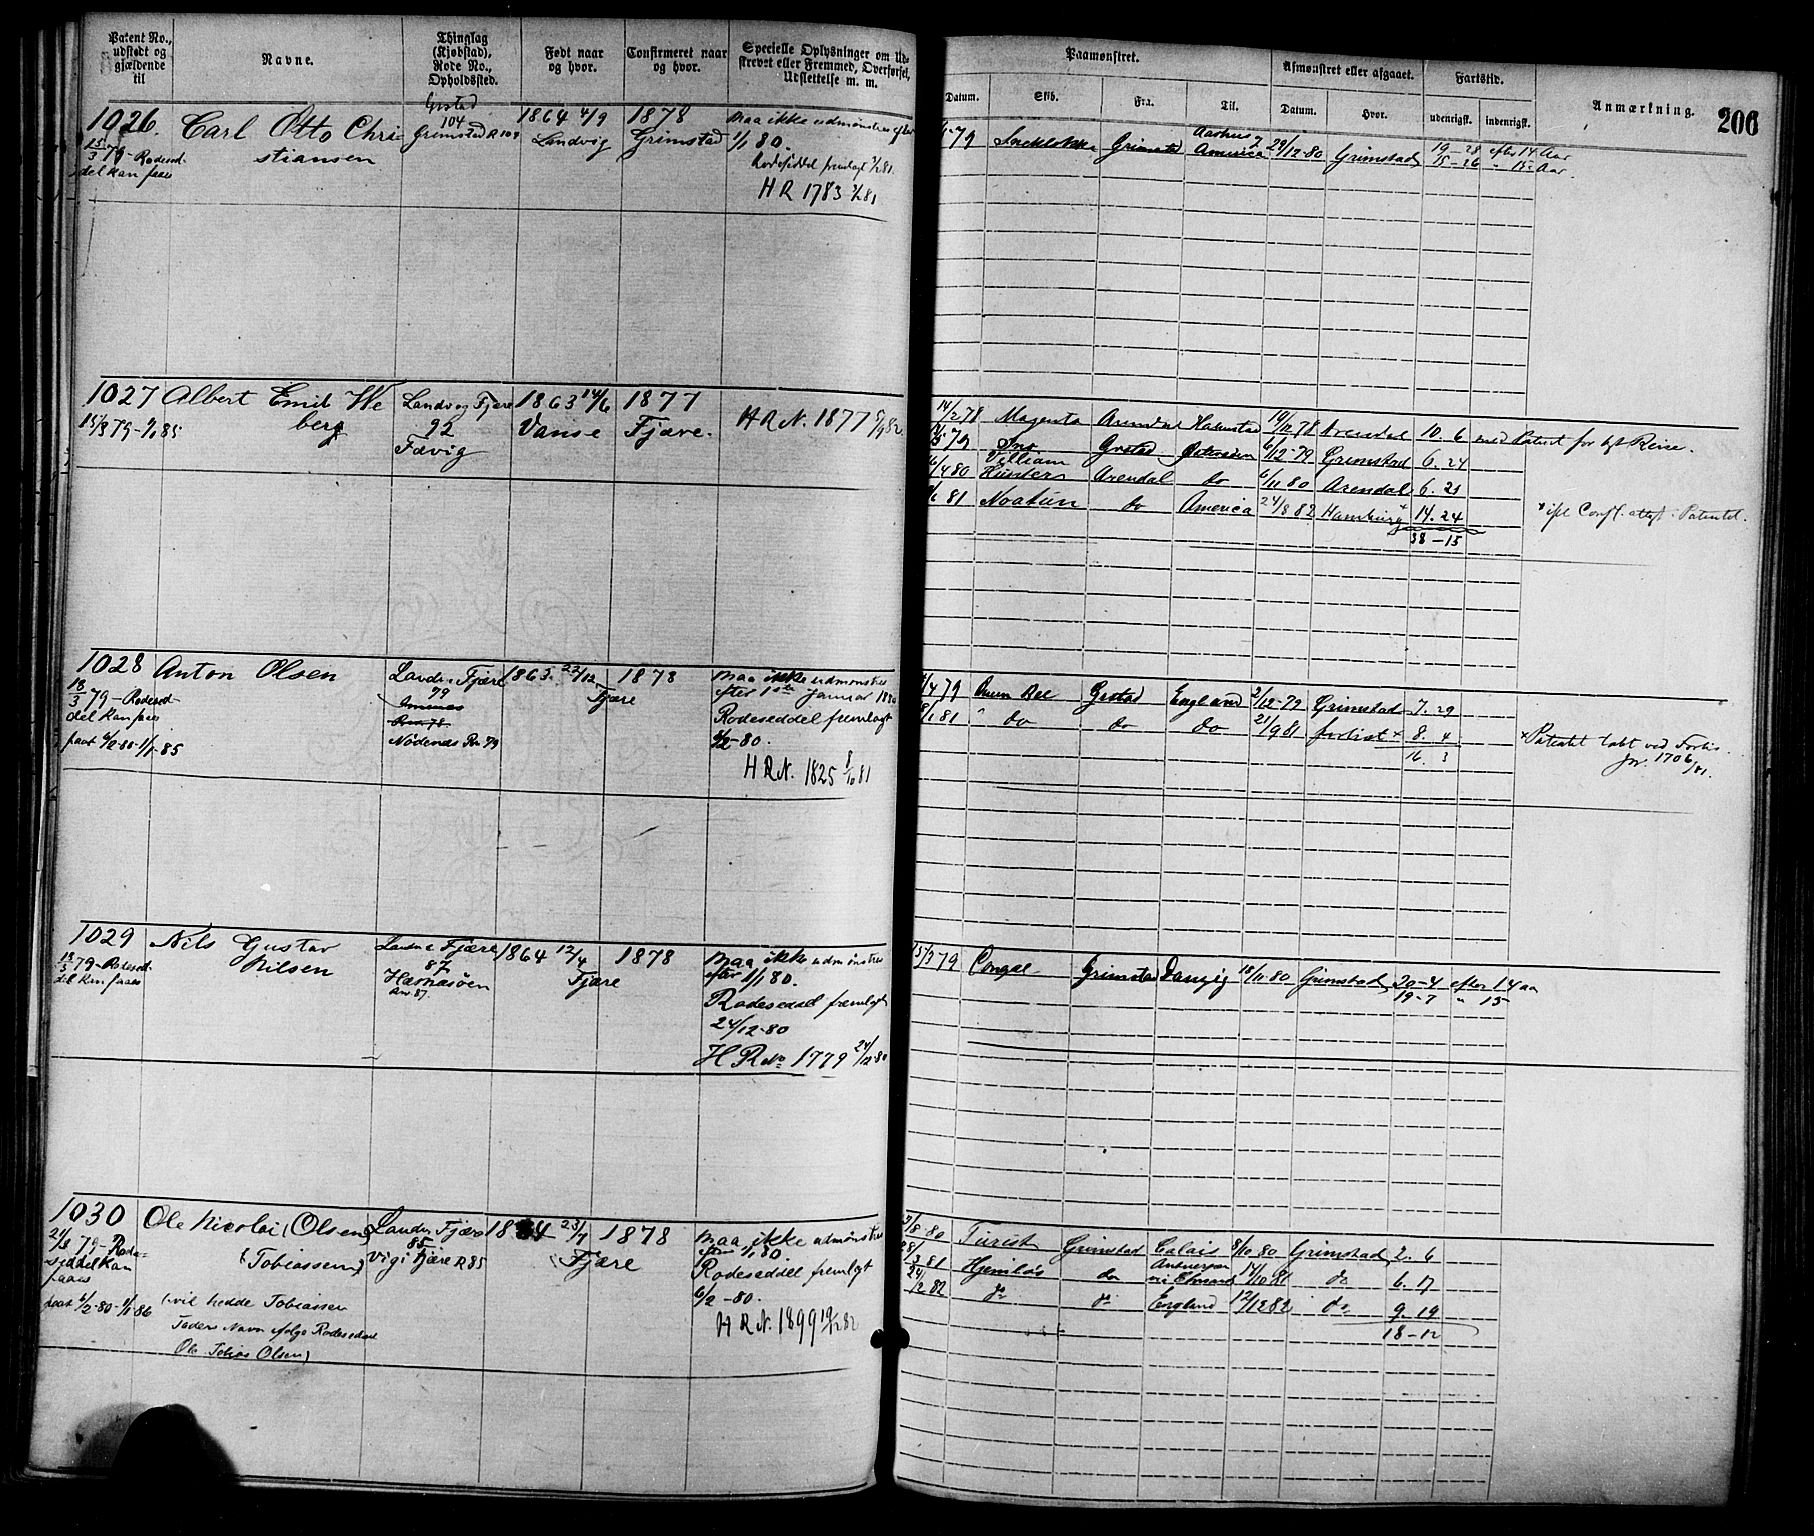 Patent No., udstedt og gjældende til
Navne.
Thinglag (Kjøbstad), Rode No., Opholdssted.
Født naar og hvor.
Confirmeret naar og hvor.
Specielle Oplysninger om Udskrevet eller Fremmed, Overførsel, Udslettelse m. m.
Paamønstret.
Datum.
Skib.
Fra.
Til.
Afmønstret eller afgaaet.
Datum.
Hvor.
Fartstid.
udenrigsk.
indenrigsk.
Anmærkning.
206
1026.
15/3 79 - Rodesed-
del kan faaes
Carl Otto Chri-
stiansen
Grstad
104
Grimstad R 104
1864 4/9
Landvig
1878
Grimstad
Maa ikke udmønstres efter
1/1 80.
Rodeseddel fremlagt 7/2 81.
H R 1783 7/2 81
79
Grimstad
Aarhus
America
29/12 80
Grimstad
19 - 28 efter 14 Aar
15 - 26 " 15 Aar.
1027
15/3 79 - 1/1 85
Albert Emil We
berg
Landv og Fjære
92
Fævig
1863 14/6
Vanse
1877
Fjære.
H R N. 1877 82
14/2 78 Magenta Arendal Halmstad 19/12 78 Arendal 10. 6 med Patent for 1st Reise.
79 Grstad Østersøen 6/12 - 79 Grimstad 6. 24
William
6/4 80 Hunter Arendal do 6/11 80 Arendal 6. 21
81 Noatun do America 24/8 82 Hamburg 14. 24
38 - 15
1028
18/3 79 - Rodesed-
del kan faaes
faaet 6/2 - 80 - 1/1 - 85
Anton Olsen
Landv. Fjære
79
Rn 78
Nødenes Rn 79
1863. 22/12
Fjære
1878
Maa ikke udmønstres
efter 1ste Januar 1880
Rodeseddel fremlagt
6/2 - 80.
H R N. 1825 8/10 81
4 79 Grstad England 2/12 - 79 Grimstad 7. 29
81 " do do do 21/9 81 forlist × 8. 4
16. 3
× Patentet tabt ved Forlis.
Jr. 1706/81.
1029
18/3 79 - Rodesed-
del kan faaes
Nils Gustav
Nilsen
Landv. Fjære
87
Hasnæsøen
1864 12/4
Fjære
1878
Maa ikke udmønstres
efter 1/1 80.
Rodeseddel fremlagt
24/12 - 80
H R No 1779 24/12 80
15/3 79 Grimstad Danzig 18/11 80 Grimstad 20 - 4 efter 14 aa
19 - 7 " 15
1030
21/3 79 - Rode-
seddel kan
faaes
faaet 6/2 - 80 - 1/1 - 86
Ole Nicolai (Olsen)
(Tobiassen)
(vil hedde Tobiassen
Faders Navn ifølge Rodeseddel
Ole Tobias Olsen)
Landv. Fjære
85
Vigi Fjære R 85
1864 23/7
Fjære
1878
Maa ikke udmønstres
efter 1/1 80
Rodeseddel fremlagt
6/2 - 80.
H R N. 1899 19/12 82
8 - 80 Turist Grimstad Calais 8/10 80 Grimstad 2. 6
28/3 81 Hjemløs do Antwerpen 17/10 81 do 6. 17
24/2 82 do do England 12/12 82 do 9. 19
18 - 12